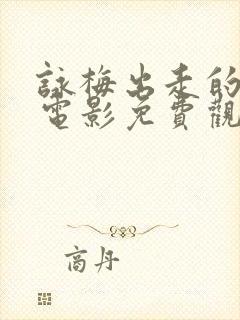 詠梅出走的
電影免費觀
商丹